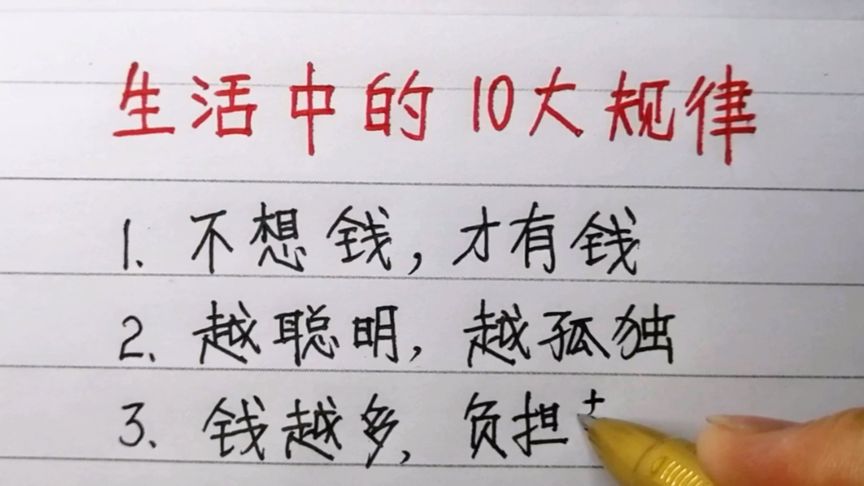 生活中的10大规律
1. 不想钱，才有钱
2. 越聪明，越孤独
3. 钱越多，负担